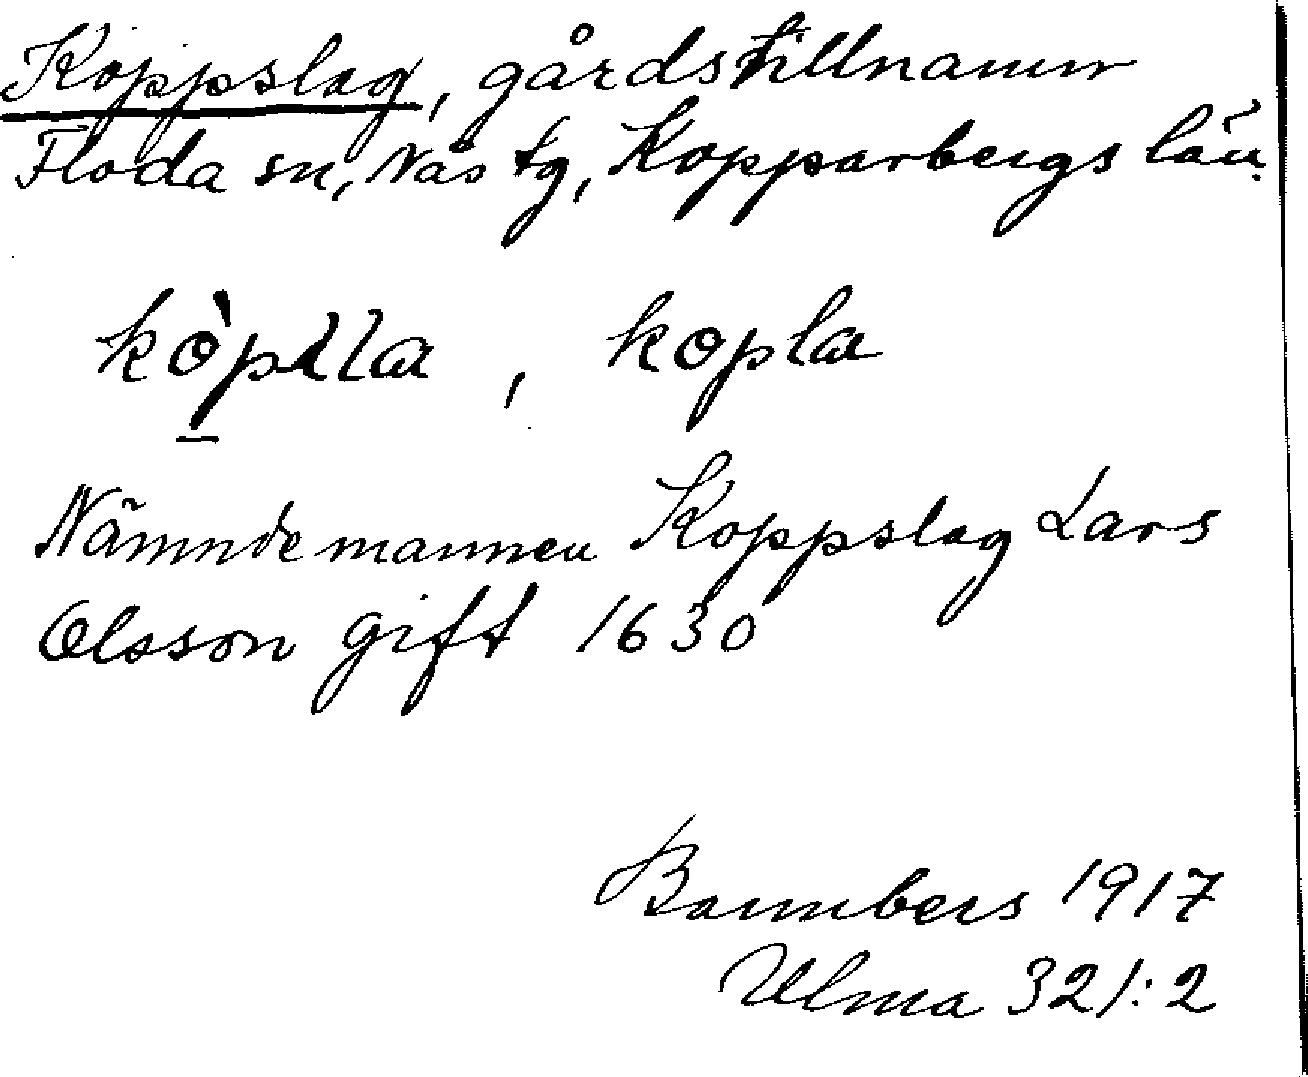 Koppslag, gårdstillnamn
Floda sn, Nås tg, Kopparbergs län.
kopla
Nämndemannen Koppslag Lars
Olsson gift 1630
Bannbers 1917
Ulma 321:2